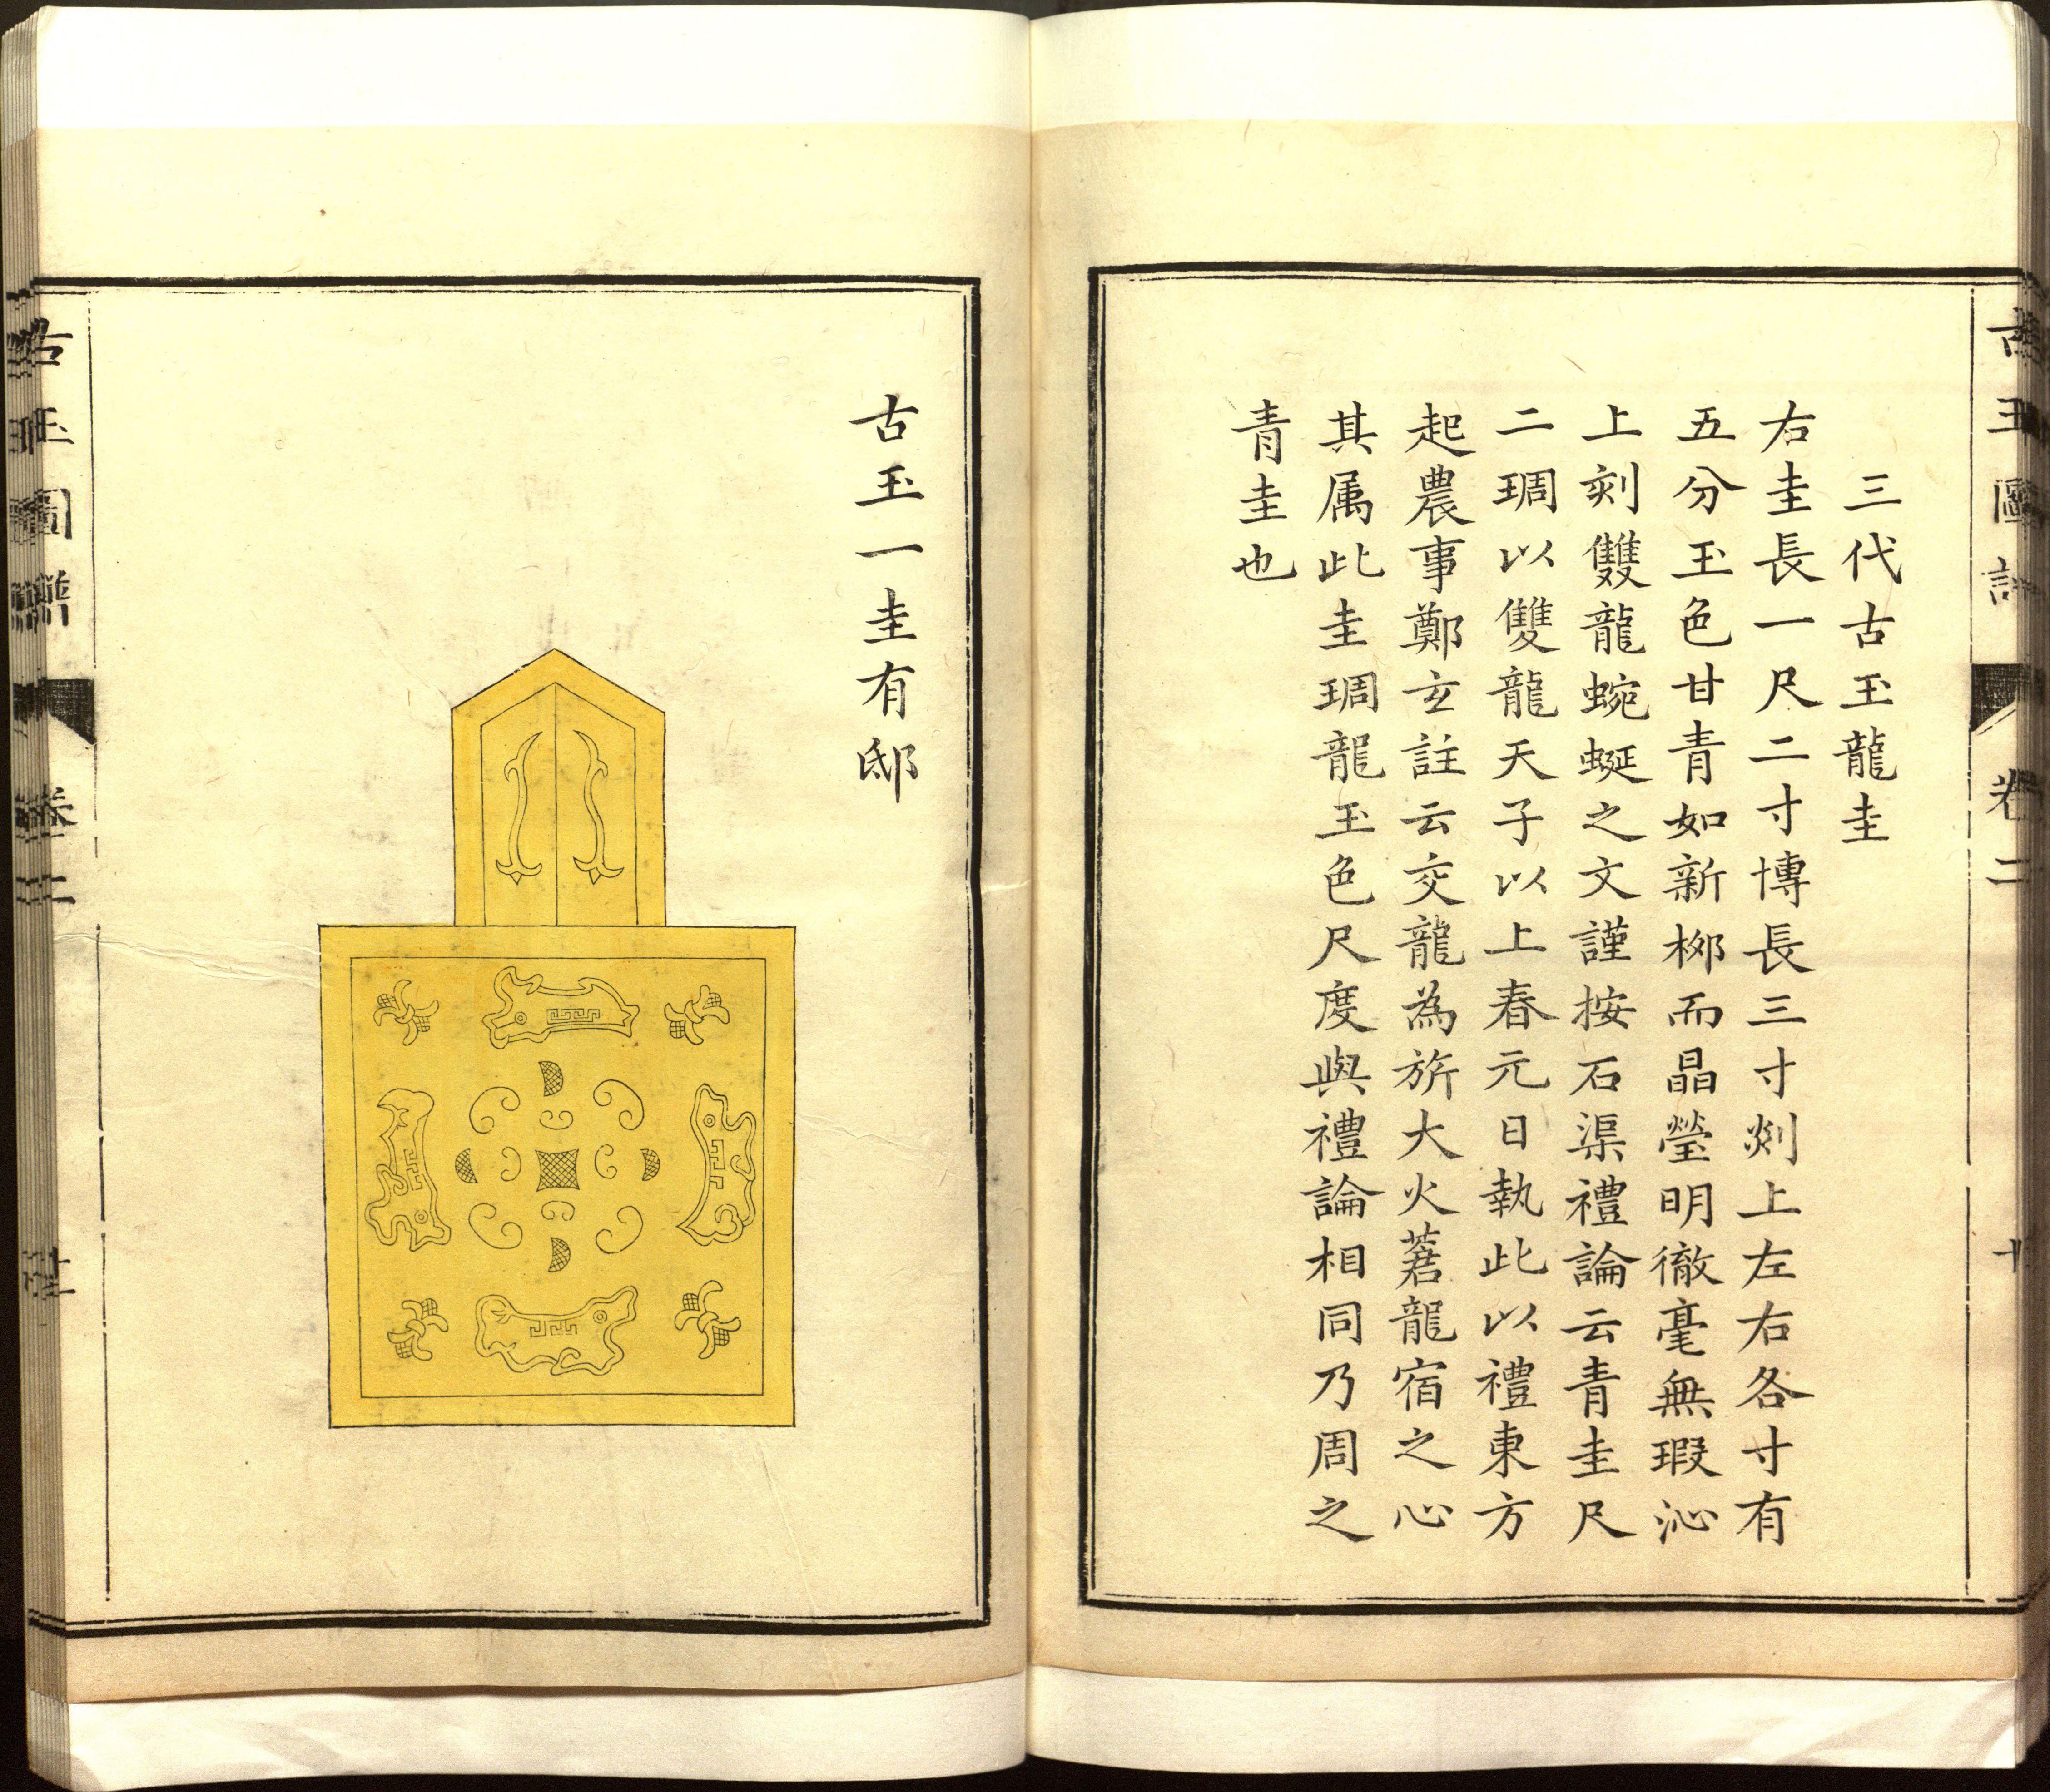 古玉圖
卷二
三代古玉龍圭
右圭長一尺二寸博長三寸剡上左右各寸有
五分玉色甘青如新栁而晶瑩明徹毫無瑕沁
上刻雙龍蜿蜒之文謹按石渠禮論云青圭尺
二琱以雙龍天子以上春元日執此以禮東方
起農事鄭玄註云交龍為旂大火蒼龍宿之心
其属此圭琱龍玉色尺度與禮論相同乃周之
青圭也
古玉一圭有邸
古玉圖譜
卷二